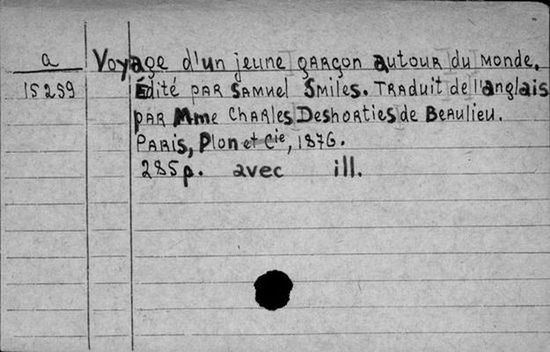 a Voyage d'un jeune garçon autour du monde.
15259 Édité par Samuel Smiles. Traduit de l'anglais
par Mme Charles Deshorties de Beaulieu.
Paris, Plon et Cie, 1876.
285p. avec ill.